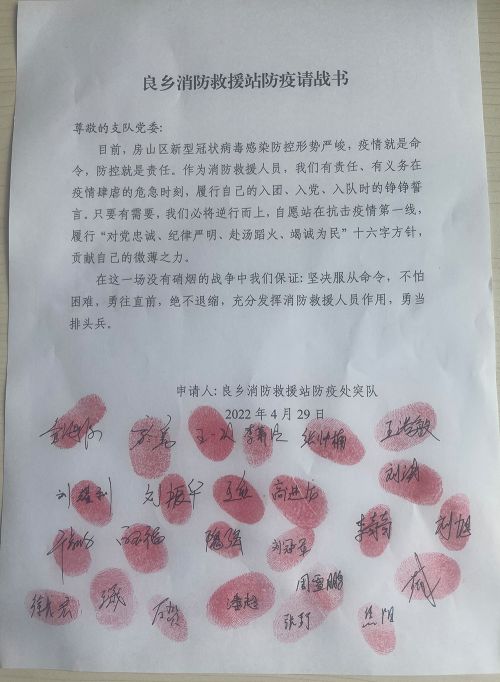 良乡消防救援站防疫请战书
尊敬的支队党委：
目前，房山区新型冠状病毒感染防控形势严峻，疫情就是命
令，防控就是责任。作为消防救援人员，我们有责任、有义务在
疫情肆虐的危急时刻，履行自己的入团、入党、入队时的铮铮誓
言。只要有需要，我们必将逆行而上，自愿站在抗击疫情第一线，
履行“对党忠诚、纪律严明、赴汤蹈火、竭诚为民”十六字方针，
贡献自己的微薄之力。
在这一场没有硝烟的战争中我们保证：坚决服从命令，不怕
困难，勇往直前，绝不退缩，充分发挥消防救援人员作用，勇当
排头兵。
申请人：良乡消防救援站防疫处突队
2022 年 4 月 29 日
王浩敏
刘振华
刘冠军 李奇奇 刘旭
潘超 周雪鹏 张野 焦阳